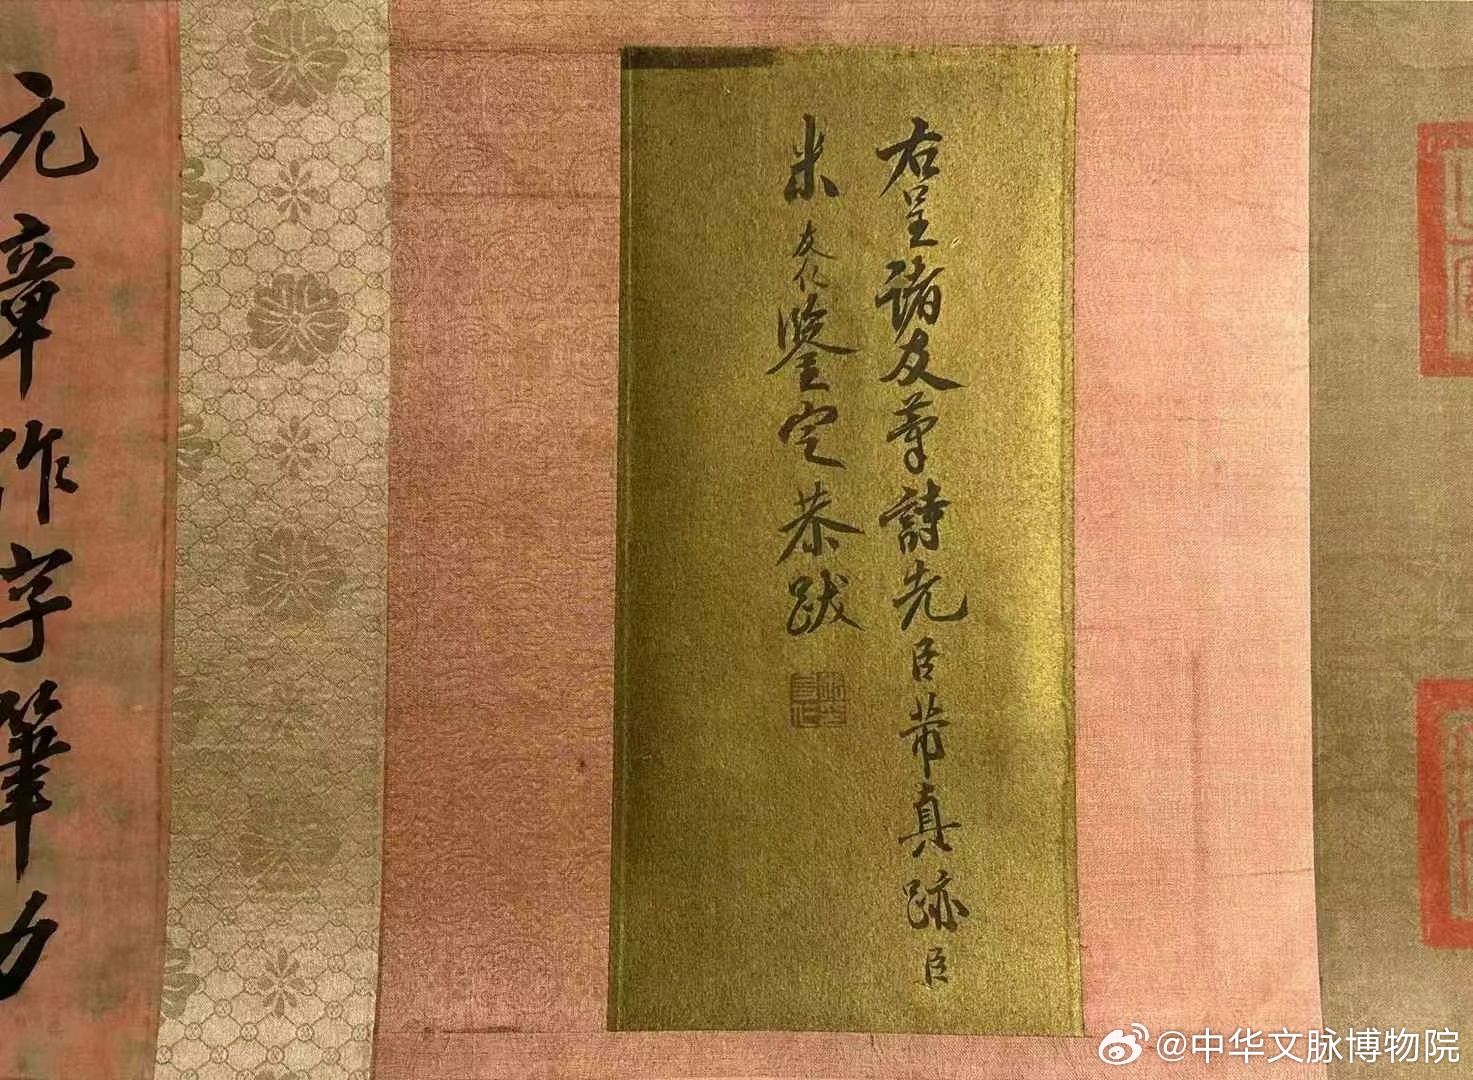 右呈諸友等詩先臣芾真跡臣
米友仁鑒定恭跋
元章作字筆力
@中华文脉博物院